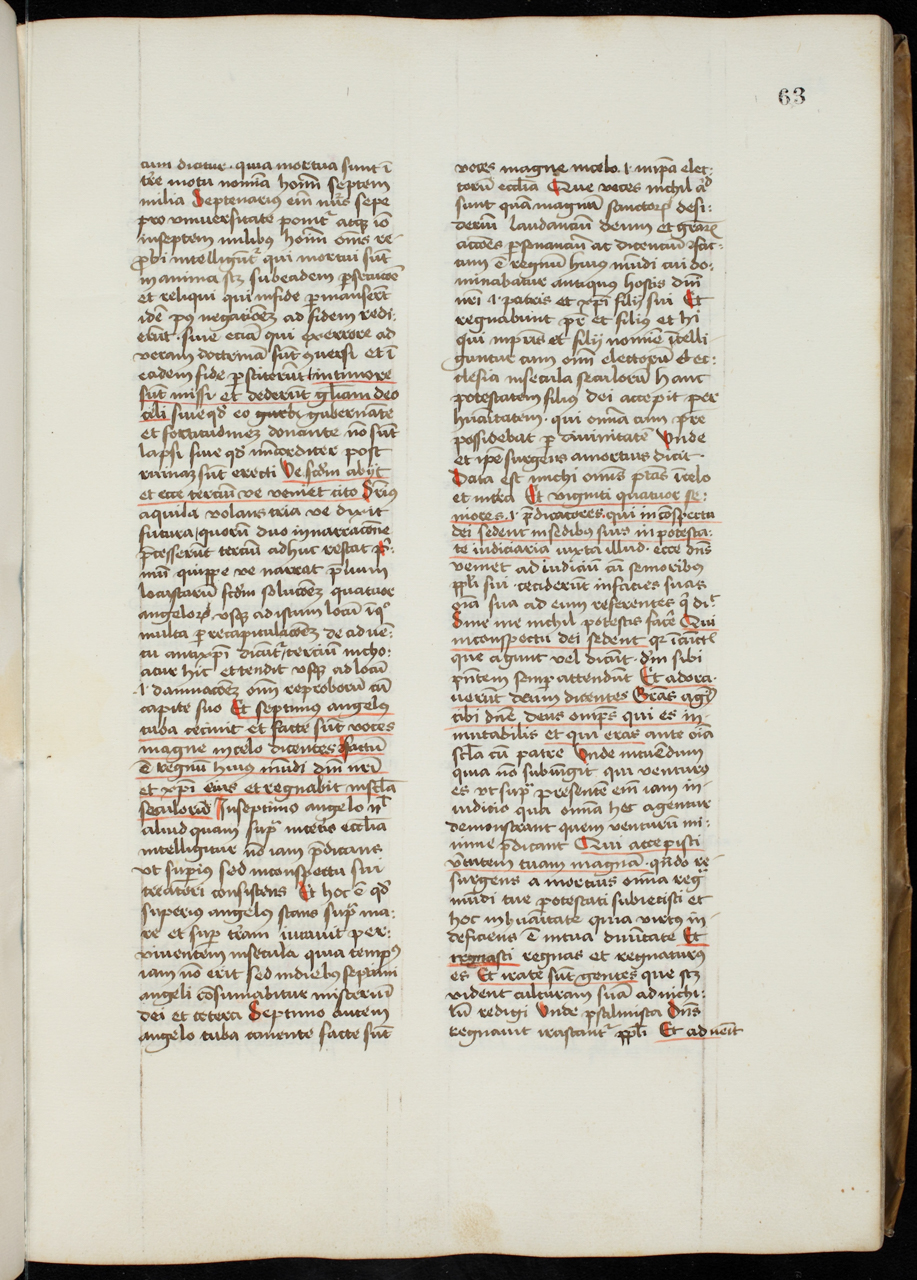 63
cum dicitur · quia mortua sunt ī
t̄re motu nomīa hoīm septem
milia Septenarius eīm nūs sepe
pro vniuersitate ponit᷑ atqȝ iō
inseptem milibus hoīm om̄s re-
ꝓbi intelligūt᷑ qui mortui sūt
in anima scȝ subeadem ꝑsecucōē
et reliqui qui infide ꝑmanserūt
idē pꝰ negacōeȝ ad fidem redi-
erūt · siue eciā qui ex errore ad
veram doctrinā sūt ꝯuersi et ī
eadem fide ꝑstiterūt intimore
sūt missi et dederūt gl̄iam deo
celi siue qd̓ eo gubernāte
et fortitudineȝ donante nō sūt
lapsi siue qd̓ mīcorditer post
ruinaȝ sūt erecti Ve scd̄m abijt
et ecce terciū ve veniet cito
aquila volans tria ve dixit
futura · quorū duo innarracōne
p̄cesserūt terciū adhuc restat Pri-
mū quippe ve narrat p̄lium
locustarū scd̄m solucōeȝ quatuor
angeloꝝ vsqȝ ad istum locū
multa ꝑ recapitulacōeȝ de aduē-
tu antixp̄i dicūt᷑ terciū incho-
atur hic et tendit vsqȝ ad locū
·i· damnacōeȝ om̄i reproborū cū
capite suo Et septimus angelus
tuba cecinit et facte sūt voces
magne incelo dicentes Factū
ē regnū huius mūdi dn̄i nr̄i
et xp̄i eius et regnabit insc̄la
seculorū Inseptimo angelo
aliud quam supͣ intercio ecclīa
intelligitur nō iam p̄dicans
vt supius sed inconspectu sui
creatori consistens Et hoc ē qd̓
superius angelus stans supͣ ma-
re et suꝑ t̄ram iurauit per
viuentem insecula quia tempꝰ
iam nō erit sed indiebus septimi
angeli cōsumabitur misteriū
dei et cetera Septimo autem
angelo tuba canente facte sūt
voces magne incelo ·i· inip̄a elec-
torū ecclīa Que voces nichil
sunt quā magnū sanctoꝝ desi-
deriū laudanciū deum et graȝ
acciōes ꝑsonanciū ac dicenciū fac-
tum ē regnū huius mūdi cui do-
minabatur antiquus hostis dn̄i
nr̄i ·i· patris et xp̄i filij sui Et
regnabunt pr̄ et filius et hi
qui inpr̄is et filij nomīe ītelli-
guntur cum om̄i electorū ec-
clesia insecula seculorū hanc
potestatem filius dei accepit per
hūanitatem · qui omīa cum pr̄e
possidebat ꝑ diuinitatē Vnde
et ip̄e surgens amortuis dicit ·
Data est michi om̄is ptās īcelo
et intra Et viginti quatuor se-
niores ·i· p̄dicatores · qui inconspectu
dei sedent insedibus suis inpotesta-
te iudiciaria iuxta illud · ecce dn̄s
veniet ad iudiciū cū senioribus
ppl̄i sui · ceciderūt infacies suas
oīa sua ad eum referentes
Sine me nichil potestis facē Qui
inconspectu dei sedent
que agunt vel dicūt · dm̄ sibi
pn̄tem semꝑ attendūt Et adora-
uerūt deum dicentes Gras agimꝰ
tibi dn̄e deus om̄ps qui es in-
mutabilis et qui eras ante oīa
scl̄a cū patre Vnde intuendum
quia nō subiungit qui venturꝰ
es vt supͣ presente eīm iam in-
iudicio quā omīa hec agentur
demonstrant quem venturū mi-
nime p̄dicant Qui accepisti
v̓tutem tuam magnā · qn̄do re-
surgens a mortuis omīa regna
mūdi tue potestati subiecisti et
hoc inhūanitate quia virtus in-
deficiens ē intua diuītate Et
regnasti regnas et regnaturꝰ
es Et irate sūt gentes que scȝ
vident culturam suā ad nichi-
lū redigi Vnde psalmista Dn̄s
regnauit irascant᷑ ppl̄i Et aduēit